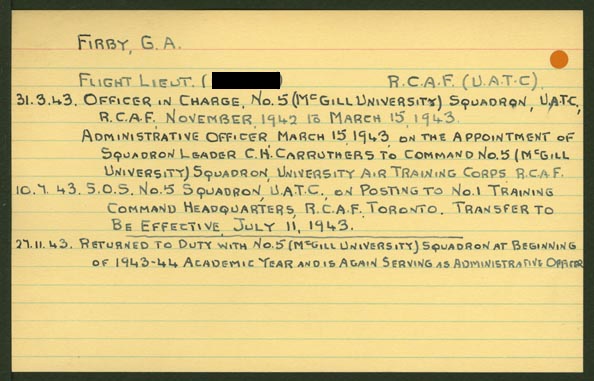 FIRBY, G.A.
FLIGHT LIEUT. ( ) R.C.A.F. (U.A.T.C).
31.3.43. OFFICER IN CHARGE, No.5 (McGILL UNIVERSITY) SQUADRON, U.A.T.C,
R.C.A.F, NOVEMBER, 1942 TO MARCH 15, 1943.
ADMINISTRATIVE OFFICER, MARCH 15, 1943, ON THE APPOINTMENT OF
SQUADRON LEADER C.H. CARRUTHERS TO COMMAND No.5 (McGILL
UNIVERSITY) SQUADRON, UNIVERSITY AIR TRAINING CORPS. R.C.A.F.
10.7.43. S.O.S. No.5 SQUADRON, U.A.T.C., ON POSTING TO No.1 TRAINING
COMMAND HEADQUARTERS, R.C.A.F. TORONTO. TRANSFER TO
BE EFFECTIVE, JULY 11, 1943.
27.11.43. RETURNED TO DUTY WITH No.5 (McGILL UNIVERSITY) SQUADRON AT BEGINNING
OF 1943-44 ACADEMIC YEAR AND IS AGAIN SERVING AS ADMINISTRATIVE OFFICER